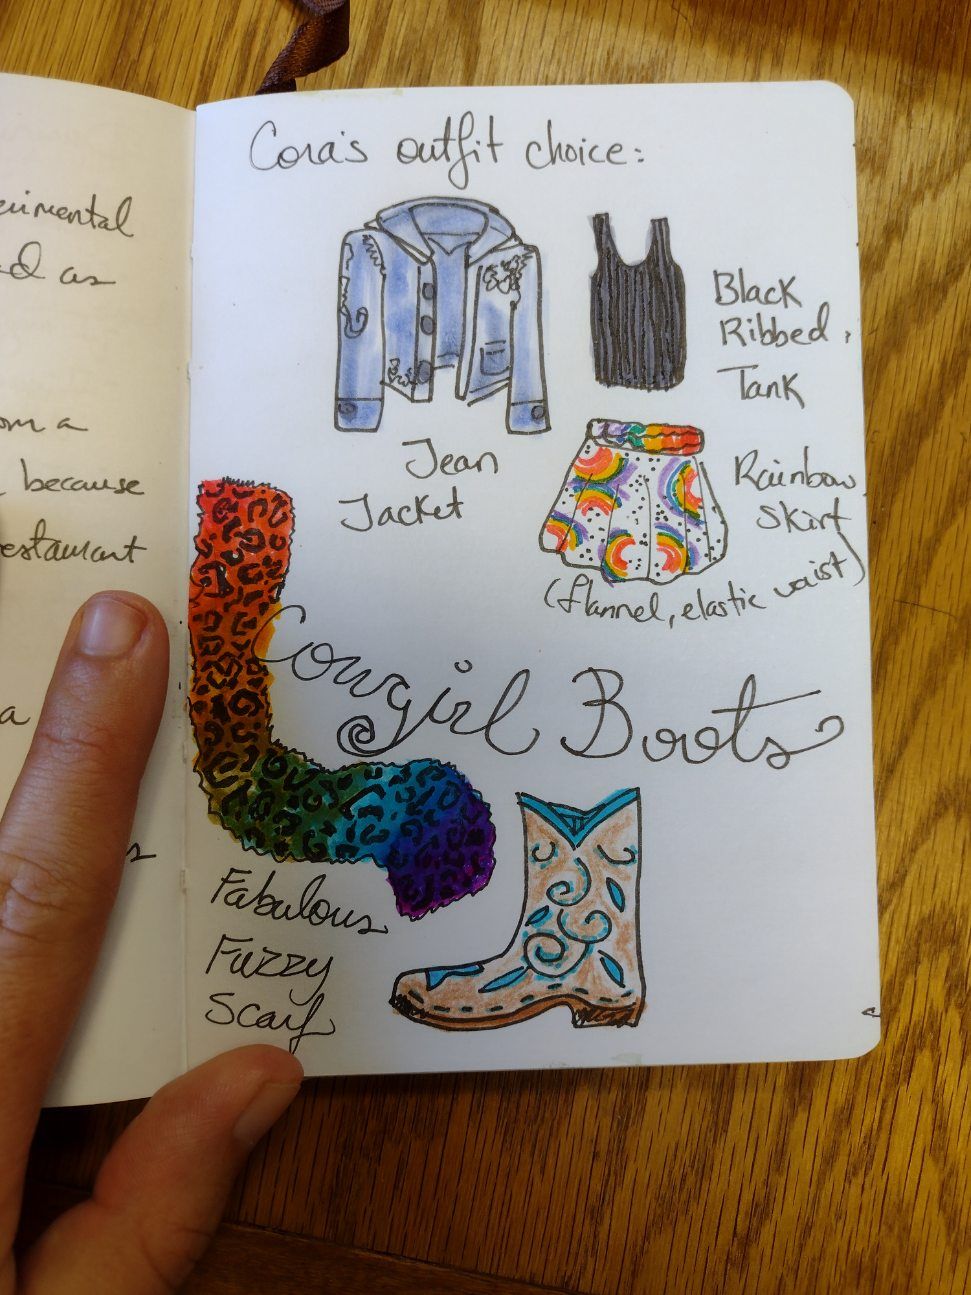 erimental
as
om a
because
estaurant
a
s
Cora's outfit choice:
Jean
Jacket
Black
Ribbed
Tank
Rainbow
Skirt
(flannel, elastic waist)
Cowgirl Boots
Fabulous
Fuzzy
Scarf